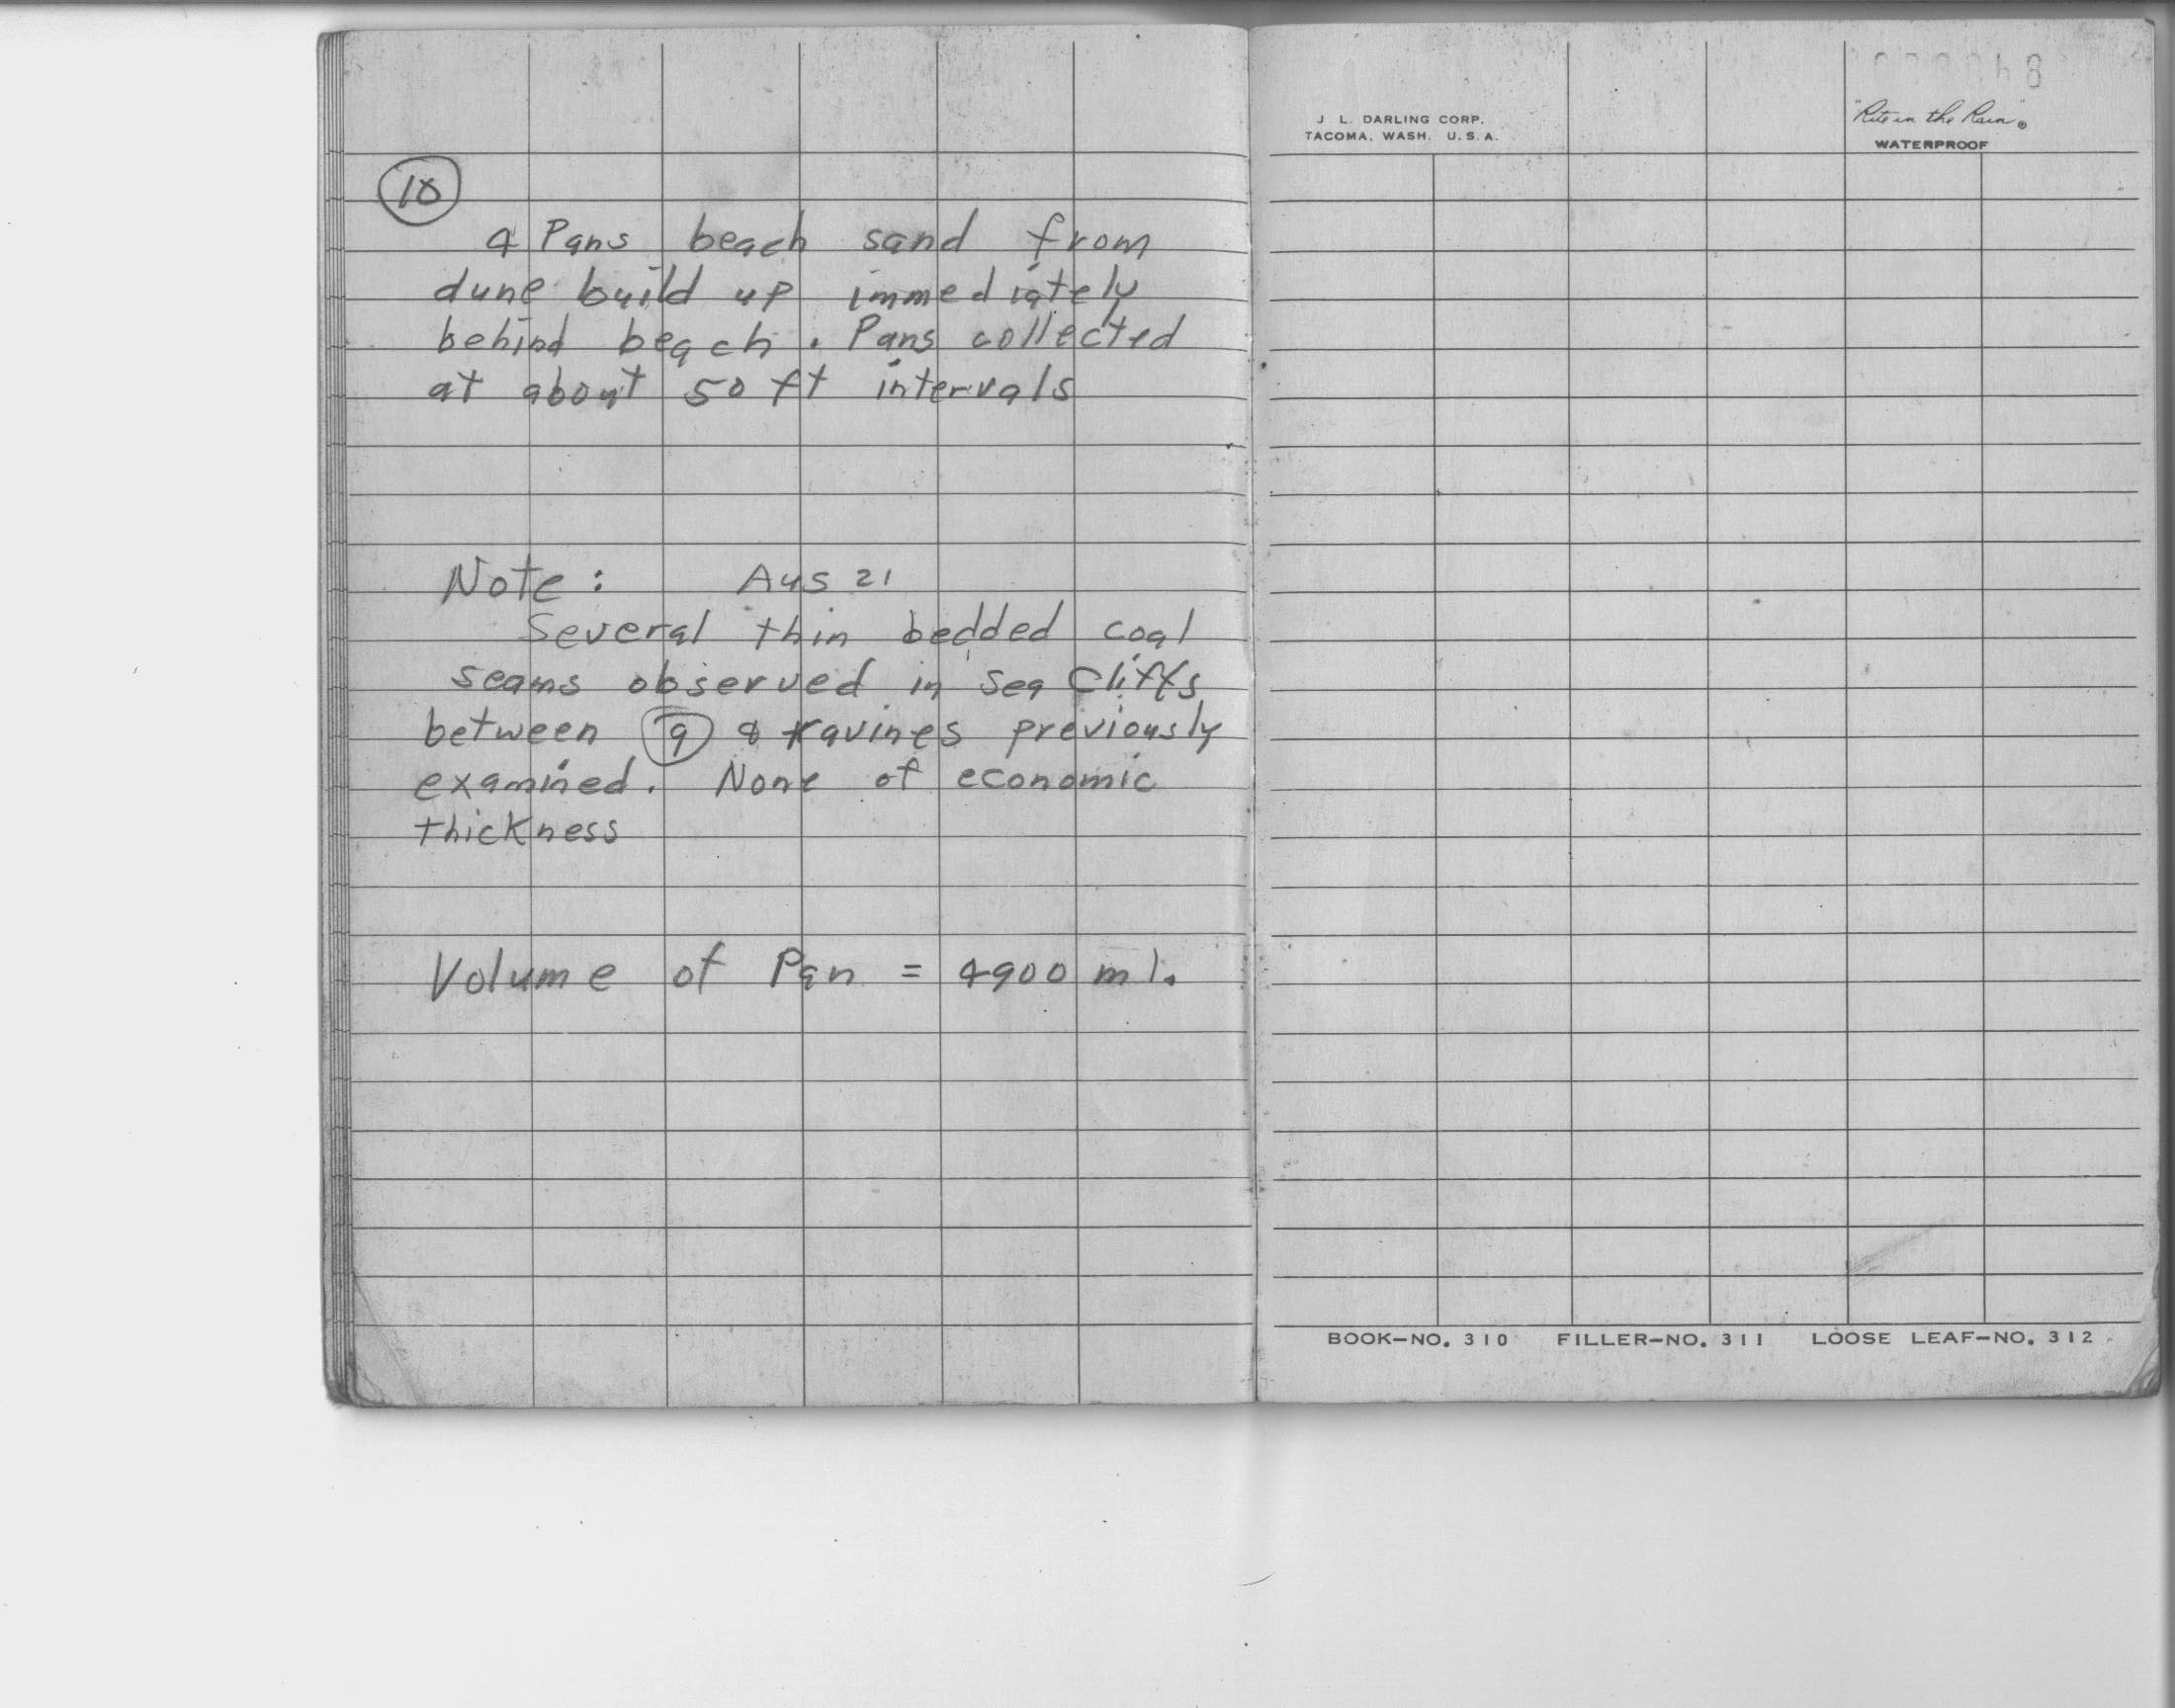 10
4 Pans beach sand from
dune build up immediately
behind beach. Pans collected
at about 50 ft intervals
Note: Aug 21
Several thin bedded coal
seams observed in sea cliffs
between 9 & ravines previously
examined. None of economic
thickness
Volume of Pan = 4900 ml.
J. L. DARLING CORP.
TACOMA, WASH. U.S.A.
"Rite in the Rain"®
WATERPROOF
BOOK-NO. 310 FILLER-NO. 311 LOOSE LEAF-NO. 312